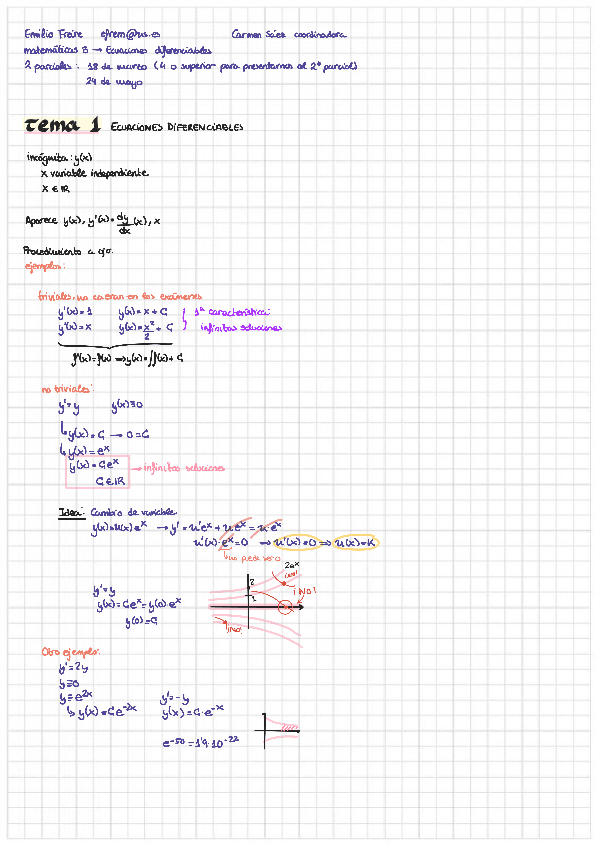 Emilio Freire efrem@us.es Carmen Sáez coordinadora
matemáticas 3 → Ecuaciones diferenciables
2 parciales: 18 de marzo (4 o superior para presentarnos al 2º parcial)
24 de mayo
Tema 1 ECUACIONES DIFERENCIABLES
incógnita: y(x)
x variable independiente
x ∈ ℝ
Aparece y(x), y'(x) = dy/dx (x), x
Procedimiento a
ejemplos:
triviales, no caeran en los exámenes
y'(x) = 1 y(x) = x + C 1ª característica:
y'(x) = x y(x) = x²/2 + C infinitas soluciones
y'(x) = f(x) ⟹ y(x) = ∫f(x) + C
no triviales:
y' = y y(x) ≡ 0
↳ y(x) = C → 0 = C
↳ y(x) = eˣ
y(x) = Ceˣ → infinitas soluciones
C ∈ ℝ
Idea: Cambio de variable
y(x) = u(x)eˣ → y' = u'eˣ + u eˣ = u eˣ
u'(x)·eˣ = 0 ⟹ u'(x) = 0 ⟹ u(x) = K
↳ no puede ser 0
2eˣ
2
¡NO!
¡NO!
1
y' = y
y(x) = Ceˣ = y(0)·eˣ
y(0) = C
¡NO!
Otro ejemplo:
y' = 2y
y ≡ 0
y = e²ˣ y' = -y
↳ y(x) = Ce⁻²ˣ y(x) = C·e⁻ˣ
e⁻⁵⁰ = 1'9·10⁻²²